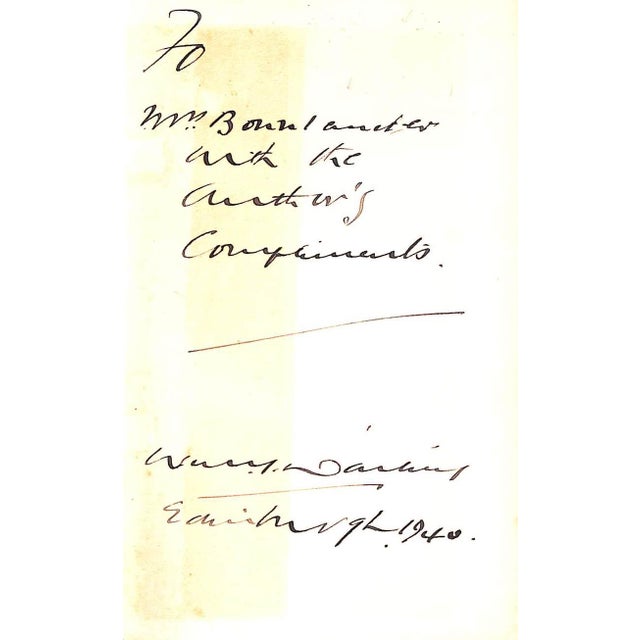 To
Mrs Bonnlander
with the
Author's
Compliments.
Will. Y. Darling
Edinburgh. 1940.